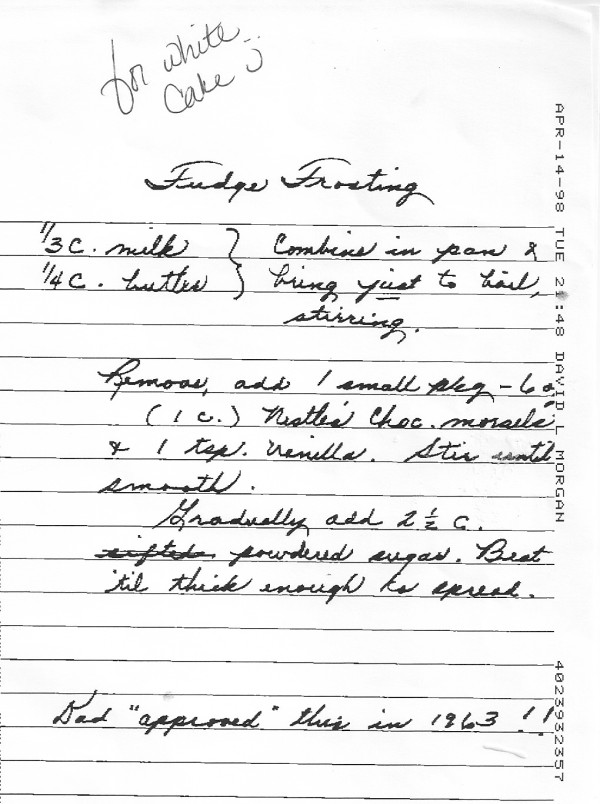 for white
Cake
Fudge Frosting
1/3 C. milk } Combine in pan &
1/4 C. butter } bring just to boil,
stirring.
Remove, add 1 small pkg - 6 o
(1 c.) Nestle's Choc. morsels
& 1 tsp. Vanilla. Stir until
smooth.
Gradually add 2 1/2 c.
sifted powdered sugar. Beat
'til thick enough to spread.
Dad "approved" this in 1963 !!
APR-14-98 TUE 21:48 DAVID L MORGAN 4023932357